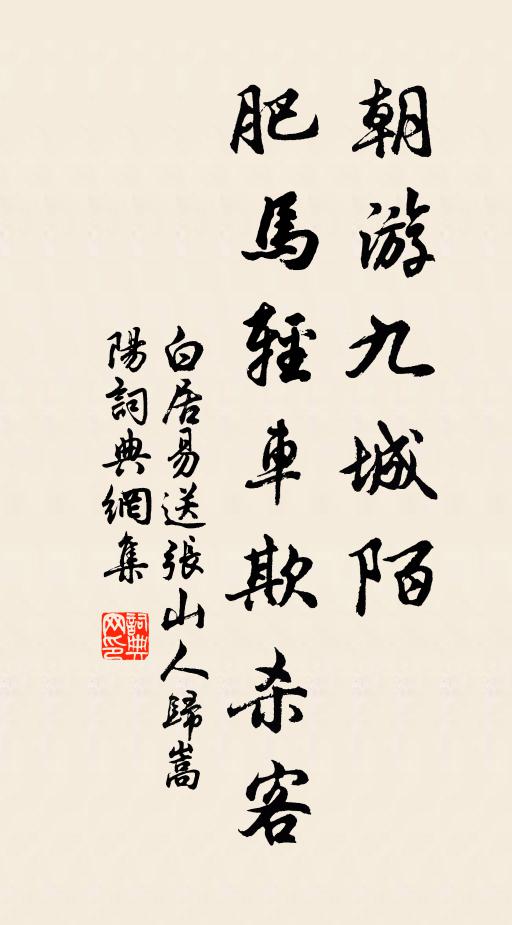 朝游九城陌
肥馬輕車欺杀客
白居易送張山人歸嵩
陽詞典網集
詞典网印